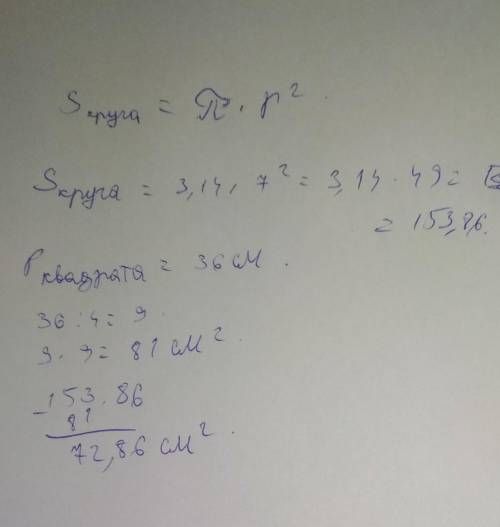 Sкруга = π · r².
Sкруга = 3,14 · 7² = 3,14 · 49 =
= 153,86.
Pквадрата = 36 см.
36 : 4 = 9.
9 · 9 = 81 см².
153.86
- 81
72,86 см².